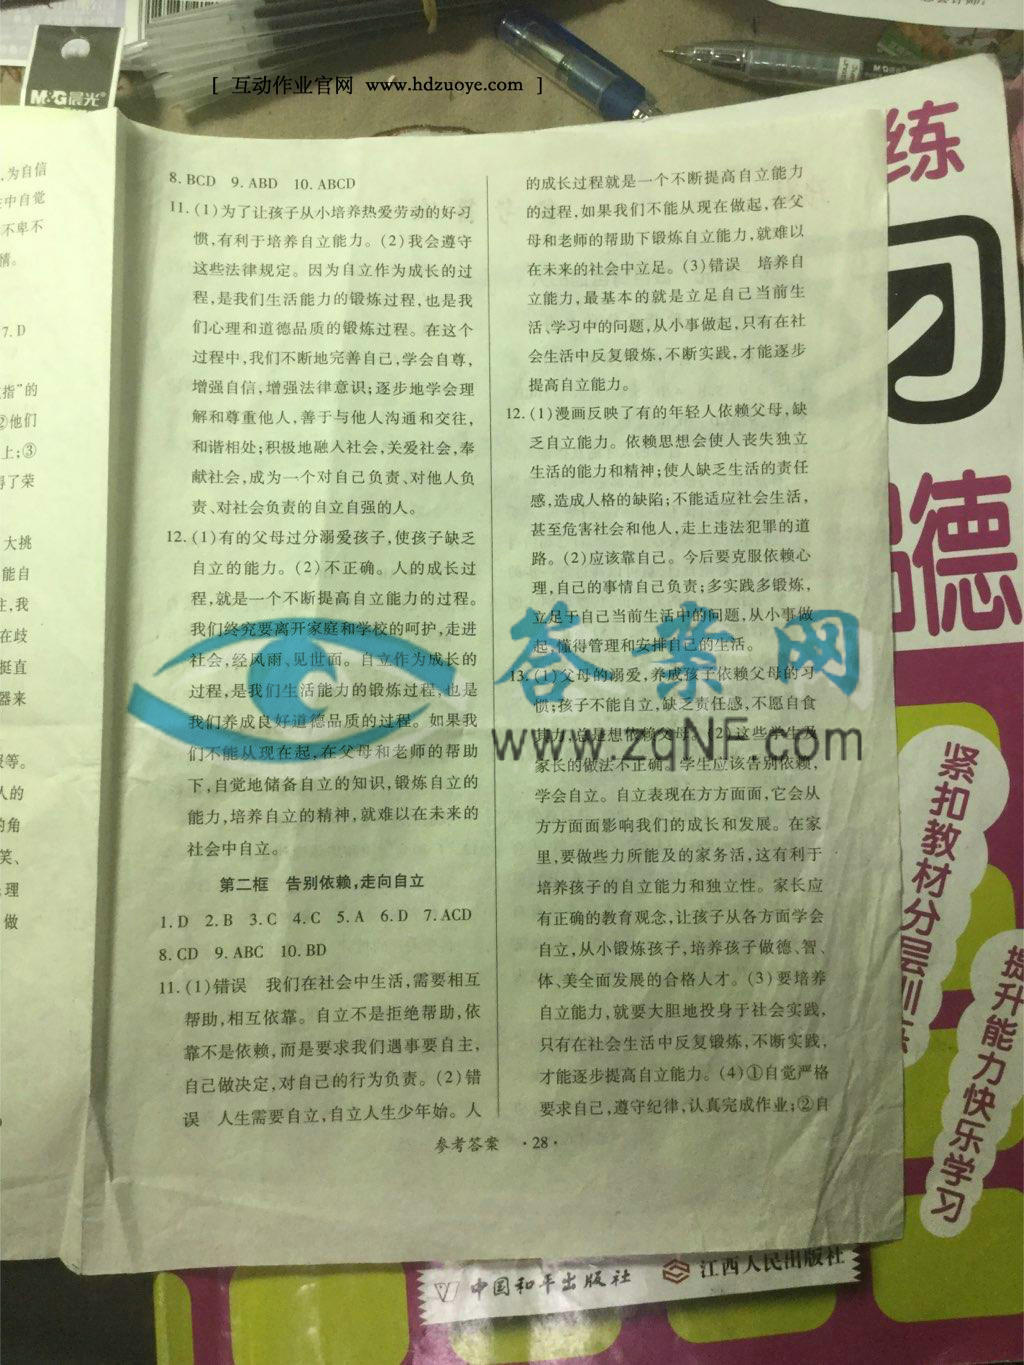 [ 互动作业官网 www.hdzuoye.com ]
M&G晨光
为自信
中自觉
不卑不
情。
7. D
指”的
②他们
上;③
得了荣
大挑
能自
主,我
在歧
挺直
器来
等。
人的
的角
笑、
理
做
8. BCD 9. ABD 10. ABCD
11. (1)为了让孩子从小培养热爱劳动的好习
惯,有利于培养自立能力。(2)我会遵守
这些法律规定。因为自立作为成长的过
程,是我们生活能力的锻炼过程,也是我
们心理和道德品质的锻炼过程。在这个
过程中,我们不断地完善自己,学会自尊,
增强自信,增强法律意识;逐步地学会理
解和尊重他人,善于与他人沟通和交往,
和谐相处;积极地融入社会,关爱社会,奉
献社会,成为一个对自己负责、对他人负
责、对社会负责的自立自强的人。
12. (1)有的父母过分溺爱孩子,使孩子缺乏
自立的能力。(2)不正确。人的成长过
程,就是一个不断提高自立能力的过程。
我们终究要离开家庭和学校的呵护,走进
社会,经风雨、见世面。自立作为成长的
过程,是我们生活能力的锻炼过程,也是
我们养成良好道德品质的过程。如果我
们不能从现在起,在父母和老师的帮助
下,自觉地储备自立的知识,锻炼自立的
能力,培养自立的精神,就难以在未来的
社会中自立。
第二框 告别依赖,走向自立
1. D 2. B 3. C 4. C 5. A 6. D 7. ACD
8. CD 9. ABC 10. BD
11. (1)错误 我们在社会中生活,需要相互
帮助,相互依靠。自立不是拒绝帮助,依
靠不是依赖,而是要求我们遇事要自主,
自己做决定,对自己的行为负责。(2)错
误 人生需要自立,自立人生少年始。人
的成长过程就是一个不断提高自立能力
的过程,如果我们不能从现在做起,在父
母和老师的帮助下锻炼自立能力,就难以
在未来的社会中立足。(3)错误 培养自
立能力,最基本的就是立足自己当前生
活、学习中的问题,从小事做起,只有在社
会生活中反复锻炼,不断实践,才能逐步
提高自立能力。
12. (1)漫画反映了有的年轻人依赖父母,缺
乏自立能力。依赖思想会使人丧失独立
生活的能力和精神;使人缺乏生活的责任
感,造成人格的缺陷;不能适应社会生活,
甚至危害社会和他人,走上违法犯罪的道
路。(2)应该靠自己。今后要克服依赖心
理,自己的事情自己负责;多实践多锻炼,
立足于自己当前生活中的问题,从小事做
起,懂得管理和安排自己的生活。
13. (1)父母的溺爱,养成孩子依赖父母的习
惯;孩子不能自立,缺乏责任感,不愿自食
其力,总是想依赖父母。(2)这些学生及
家长的做法不正确。学生应该告别依赖,
学会自立。自立表现在方方面面,它会从
方方面面影响我们的成长和发展。在家
里,要做些力所能及的家务活,这有利于
培养孩子的自立能力和独立性。家长应
有正确的教育观念,让孩子从各方面学会
自立,从小锻炼孩子,培养孩子做德、智、
体、美全面发展的合格人才。(3)要培养
自立能力,就要大胆地投身于社会实践,
只有在社会生活中反复锻炼,不断实践,
才能逐步提高自立能力。(4)①自觉严格
要求自己,遵守纪律,认真完成作业;②自
参考答案 · 28 ·
答案网
www.zqNF.com
练
习
品德
紧扣教材分层训练
提升能力快乐学习
中国和平出版社
江西人民出版社